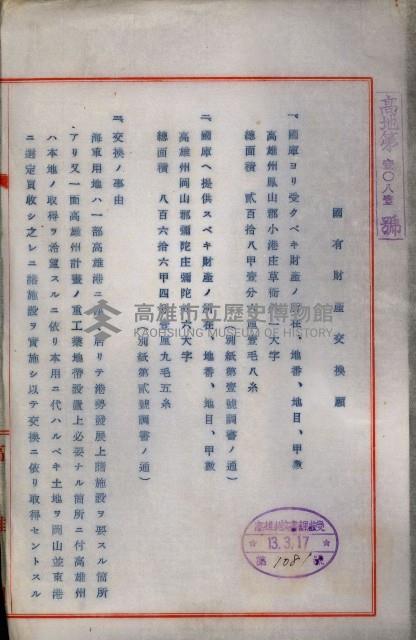 高地第壱〇八壱號
國有財產交換願
一、國庫ヨリ受クベキ財產ノ所在、地番、地目、甲數
高雄州鳳山郡小港庄草衙
大字
總面積 貳百拾八甲壹分
厘壹毛八糸
(別紙第壹號調書ノ通)
二、國庫ヘ提供スベキ財產ノ所在、地番、地目、甲數
高雄州岡山郡彌陀庄彌陀
六大字
總面積 八百六拾六甲四
壹厘九毛五糸
(別紙第貳號調書ノ通)
三、交換ノ事由
海軍用地ハ一部高雄港ニ
リテ港勢發展上諸施設ヲ要スル箇所
アリ又一面高雄州計畫ノ重工業地帶設置上必要ナル箇所ニ付高雄州
ハ本地ノ取得ヲ希望スルニ依リ本用ニ代ハルベキ土地ヲ岡山並東港
ニ選定買收シ之レニ諸施設ヲ實施シ以テ交換ニ依リ取得セントスル
13.3.17
第1081號
高雄市立歷史博物館
KAOHSIUNG MUSEUM OF HISTORY